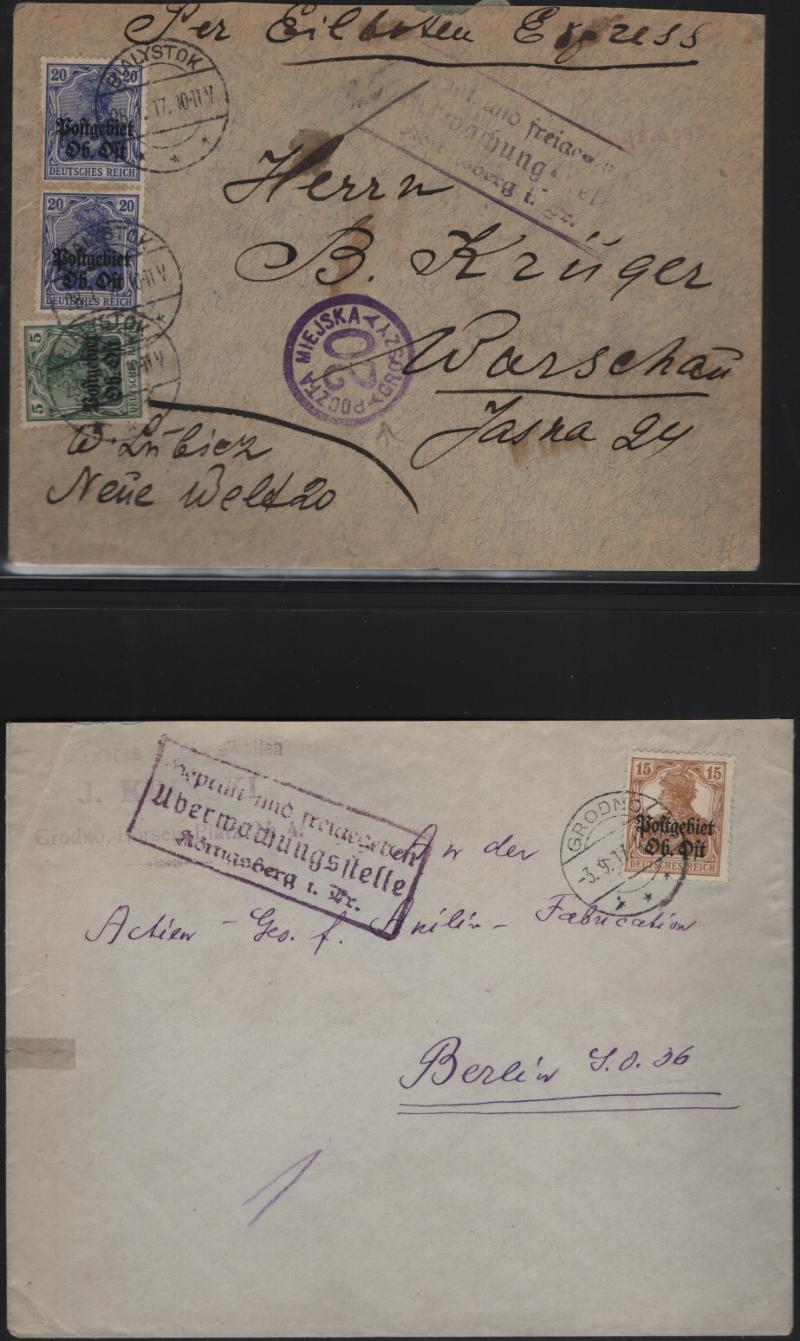 Per Eilboten Express
BIALYSTOK
17. 10-11 V
20 20
Postgebiet
Ob. Ost
DEUTSCHES REICH
und freigegeben
Überwachungsstelle
Königsberg i. Pr.
Herrn
B. Krüger
Warschau
Jasna 24
20 20
Postgebiet
Ob. Ost
DEUTSCHES REICH
POCZTA MIEJSKA
20
GROSZY
5
Postgebiet
Ob. Ost
W. Lubicz
Neue Welt 20
J.
Grodno, Börsen-
Geprüft und freigegeben
Überwachungsstelle
Königsberg i. Pr.
GRODNO
-3.9.17
15 15
Postgebiet
Ob. Ost
DEUTSCHES REICH
An der
Actien - Ges. f. Anilin - Fabrication
Berlin S.O. 36